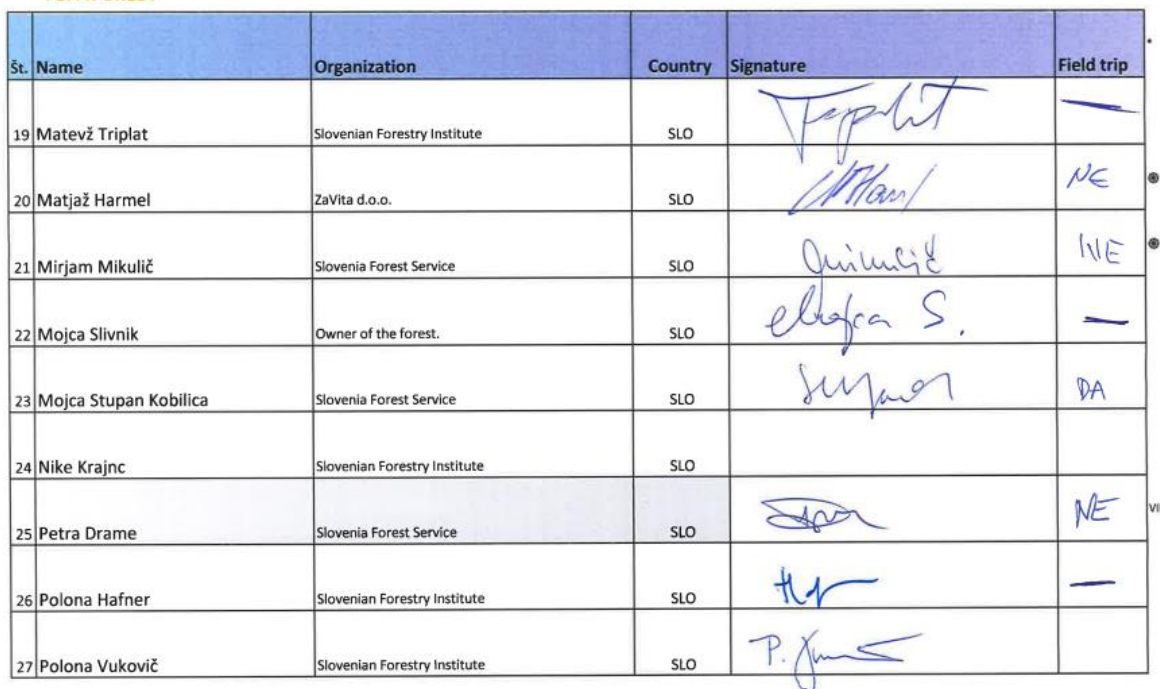 Št. Name Organization Country Signature Field trip
19 Matevž Triplat Slovenian Forestry Institute SLO Triplat —
20 Matjaž Harmel ZaVita d.o.o. SLO NE
21 Mirjam Mikulič Slovenia Forest Service SLO Mikulič NE
22 Mojca Slivnik Owner of the forest. SLO Mojca S. —
23 Mojca Stupan Kobilica Slovenia Forest Service SLO DA
24 Nike Krajnc Slovenian Forestry Institute SLO
25 Petra Drame Slovenia Forest Service SLO NE
26 Polona Hafner Slovenian Forestry Institute SLO —
27 Polona Vukovič Slovenian Forestry Institute SLO P.